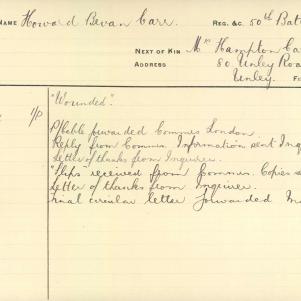 NAME Howard Bevan Carr. REG. &C. 50th Batt
NEXT OF KIN Mrs Hampton Ca
ADDRESS 80 Unley Roa
Unley.
1/P "Wounded".
P/Cable forwarded Commrs London.
Reply from Commrs. Information sent Inq
Letter of thanks from Inquirer.
"Slips" received from Commrs. Copies s
Letter of thanks from Inquirer.
Final circular letter forwarded In